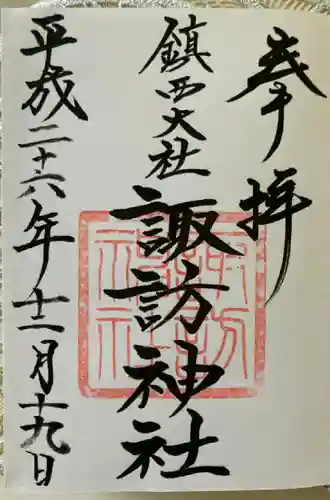 奉拝
鎮西大社
諏訪神社
平成二十六年十一月十九日
諏訪
神社